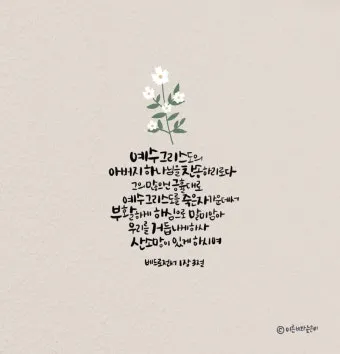 예수 그리스도의
아버지 하나님을 찬송하리로다
그의 많으신 긍휼대로
예수 그리스도를 죽은 자 가운데서
부활하게 하심으로 말미암아
우리를 거듭나게 하사
산 소망이 있게 하시며
베드로전서 1장 3절